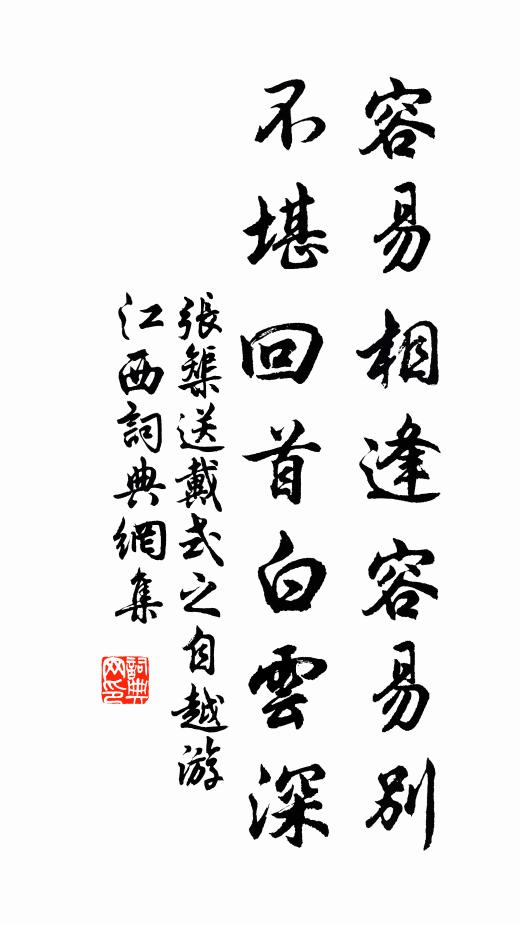 容易相逢容易別
不堪回首白雲深
張榘送戴式之自越游
江西詞典網集
詞典網印